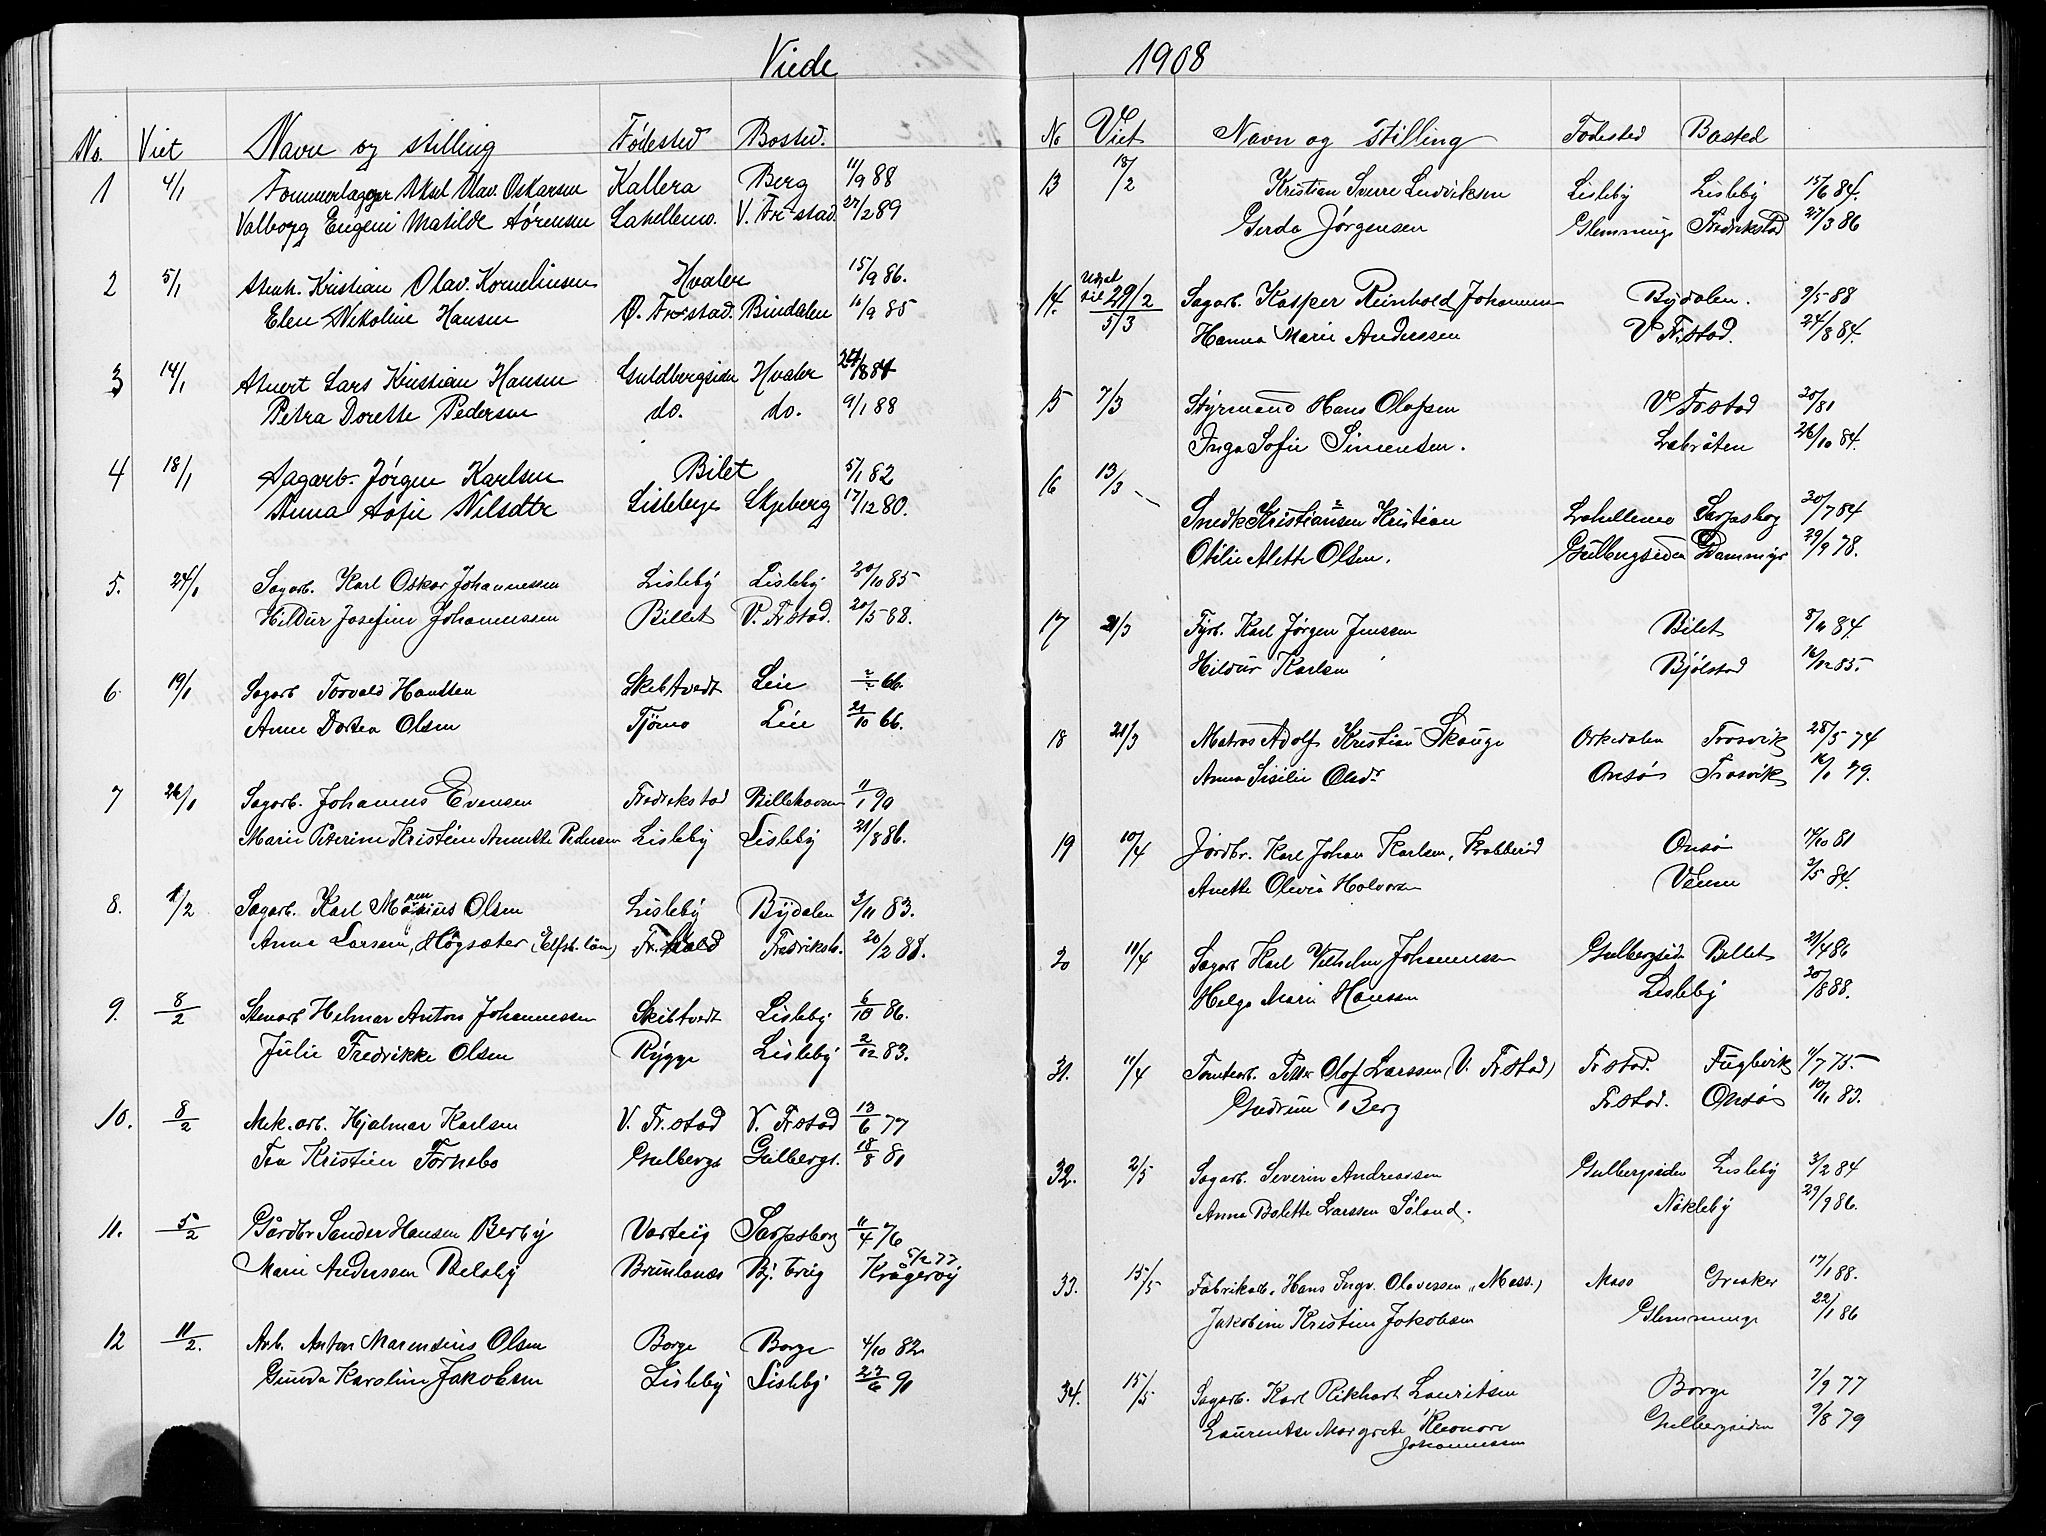 Viede
No. Viet Navn og stilling Fødested Bosted.
1 4/1 Aksel Olav. Oskarsen Kallera Berg 11/9 88
Valborg Eugeni Matilde Sørensen Lahellemo. V. Fr.stad. 27/2 89
2 5/1 Stenh. Kristian Olav. Kornelinsen Hvaler 15/9 86.
Elen Nikoline Hansen Ø. Fr.stad. Bindalen 11/9 85
3 14/1 Stuert Lars Kristian Hansen Guldbergsiden Hvaler
Petra Dorette Pedersen do. do. 9/1 88
4 18/1 Sagarb. Jørgen Karlsen Bilet 5/1 82
Anna Sofie Nilsdtr Lislebye Skjeberg 17/12 80.
5. 24/1 Sagarb. Karl Oskar Johannessen Lisleby Lisleby 30/10 85
Hildur Josefine Johannessen Billet V. Fr.stad. 20/5 88.
6. 19/1 Sagarb Torvald Hanssen Skibtvedt Leie ?/? 66.
Anne Dortea Olsen Tjømo Leie 21/10 66.
7 26/1 Sagarb. Johannes Evensen Fredrikstad Billehaven 11/1 90
Marie Peterine Kristine Annette Pedersen Lisleby Lisleby 21/8 86.
8. 1/2 Sagarb. Karl Olsen Lisleby Bydalen 3/11 83.
Anna Larsen, Høgsæter (Elfsb. län) Fr.hald Fredriksh. 20/2 88.
9. 8/2 Stenarb Helmar Anton Johannessen Skibtvedt Lisleby 6/10 86.
Julie Fredrikke Olsen Rygge Lisleby 2/12 83.
10. 8/2 Mek. arb. Hjalmar Karlsen V. Fr.stad V. Fr.stad 13/6 77
Tea Kristine Tornebo Gulbergs Gulbergs. 18/8 81
11. 5/2 Gårdbr Sander Hansen Berby Varteig Sarpsborg 11/4 76
Marie Anderssen Belsby Brunlanes Bj. brug Krågerøy 5/12 77
12 11/2. Arb. Anton Marensius Olsen Borge Borge 4/10 82
Gunda Karoline Jakobsen Lisleby Lisleby 27/6 91
1908
No Viet Navn og Stilling Fødested Bosted
13 18/2 Kristian Sverre Ludviksen Lisleby Lisleby 15/6 84.
Gerda Jørgensen Glemminge Fredrikstad 27/3 86
14. Udsat til 29/2 Sagarb. Kasper Reinhold Johannesen Bydalen. 9/5 88
5/3 Hanna Marie Anderssen V Fr.stad. 24/8 84.
15 7/3 Styrmand Hans Olafsen V Fr.stad 30/81
Inga Sofie Simensen. Labråten 26/10 84.
16 13/3
Snedk Kristiansen Kristian Lahellemo Sarpsborg 30/7 84
Otilie Alette Olsen. Gulbergsiden Dammyr 29/9 78.
17 21/3 Fyrb. Karl Jørgen Jenssen Bilet 8/11 84.
Hildur Karlsen Bjølstad 16/12 85.
18 21/3 Matros Adolf Kristian Skauge Orkedalen Trosvik 28/5 74
Anna Sisilie Olsdr Onsø Trosvik 16/1 79.
19 10/4 Jordbr. Karl Johan Karlsen, Krabberød Onsø 14/10 81
Anette Olivia Halvorsen Vænne 3/5 84.
20 11/4 Sagarb Karl Vilhelm Johannessen Gulbergsid Billet 21/4 86
Helga Marie Hanssen Lisleby 30/8 88.
31. 11/4 Tomtearb. Peter Olaf Larssen (V. Fr.stad) Fr.stad. Fuglevik 11/7 75
Gudrun Berg Fr.stad. Onsø 10/11 83.
32. 2/5 Sagarb. Severin Andreassen Gulbergsiden Lisleby 3/2 84
Anna Bolette Larssen Søland. Nøkleby 29/9 86.
33. 15/5 Fabrikarb. Hans Ingv. Olavessen (Moss.) Moss Greaker 17/1 88.
Jakobine Kristine Jakobsen Glemminge 22/1 86
34. 15/5 Sagarb. Karl Rikhart Lauritsen Borge 7/9 77
Laurentse Margrete Eleonore Gulbergsiden 9/8 79
Johannessen